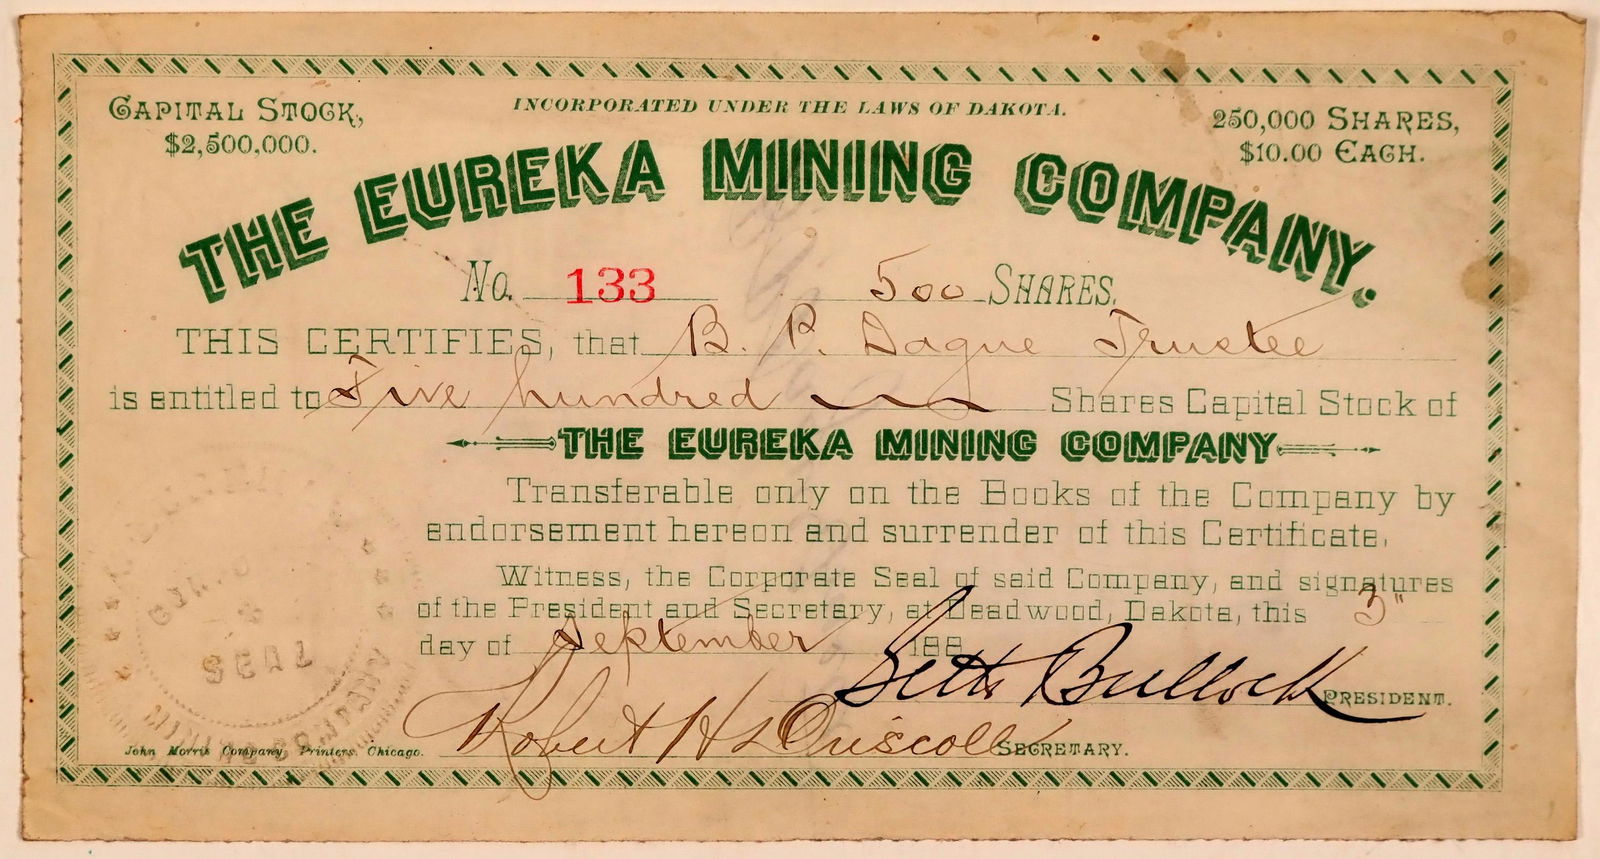 CAPITAL STOCK,
$2,500,000.
INCORPORATED UNDER THE LAWS OF DAKOTA.
250,000 SHARES,
$10.00 EACH.
THE EUREKA MINING COMPANY.
No. 133 500 SHARES.
THIS CERTIFIES, that B. P. Dague Trustee
is entitled to Five hundred Shares Capital Stock of
THE EUREKA MINING COMPANY
Transferable only on the Books of the Company by
endorsement hereon and surrender of this Certificate.
Witness, the Corporate Seal of said Company, and signatures
of the President and Secretary, at Deadwood, Dakota, this 3"
day of September 188
Seth Bullock PRESIDENT.
Robert H Driscoll SECRETARY.
John Morris Company, Printers, Chicago.